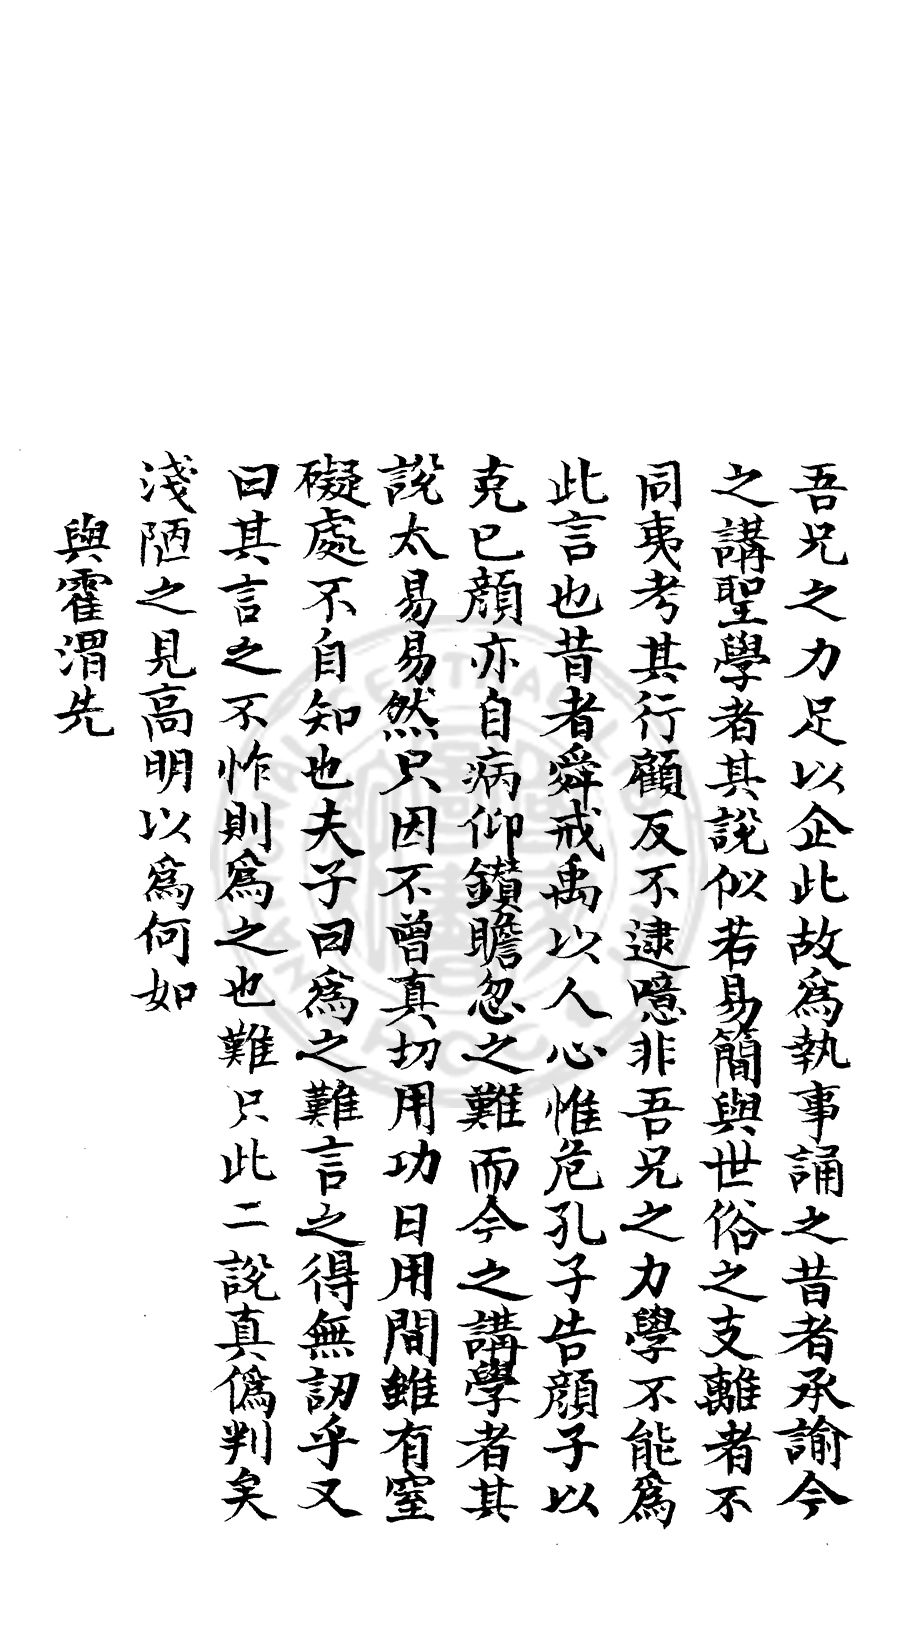 吾兄之力足以企此故爲執事誦之昔者承諭今
之講聖學者其說似若易簡與世俗之支離者不
同夷考其行顧反不逮噫非吾兄之力學不能爲
此言也昔者舜戒禹以人心惟危孔子告顏子以
克已顏亦自病仰鑽瞻忽之難而今之講學者其
說太易易然只因不曾真切用功日用間雖有窒
礙處不自知也夫子曰爲之難言之得無訒乎又
曰其言之不怍則爲之也難只此二說真僞判矣
淺陋之見高明以爲何如
與霍渭先